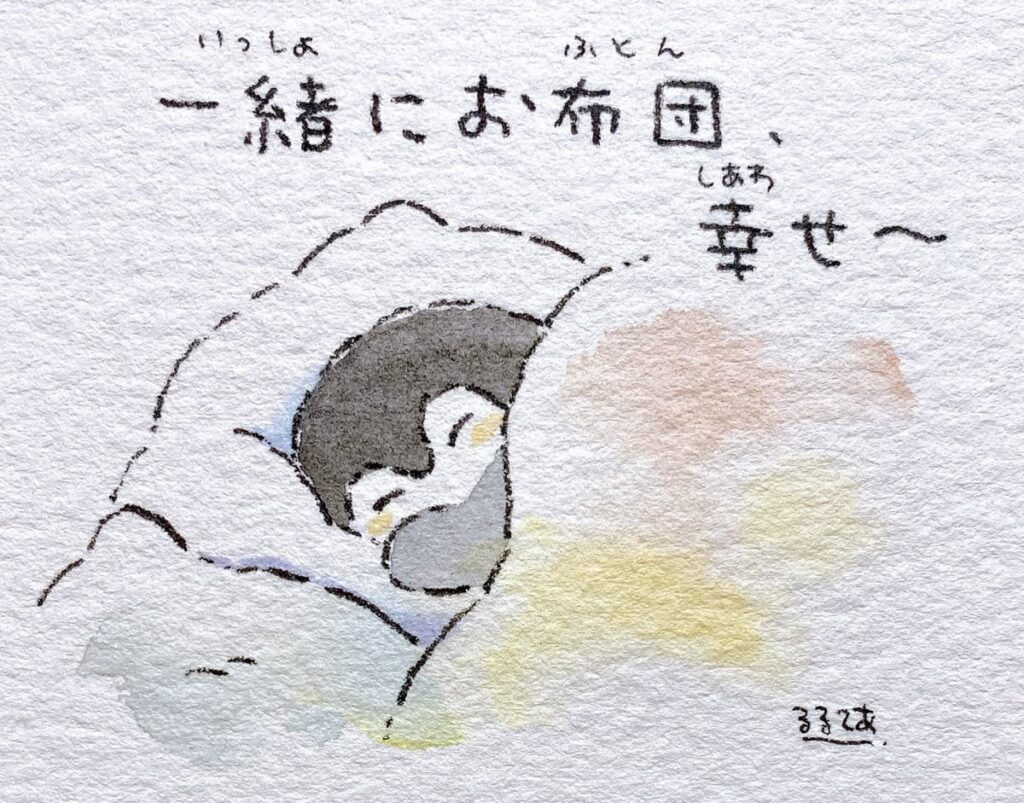 いっしょ ふとん
一緒にお布団、
しあわ
幸せ〜
るるてあ